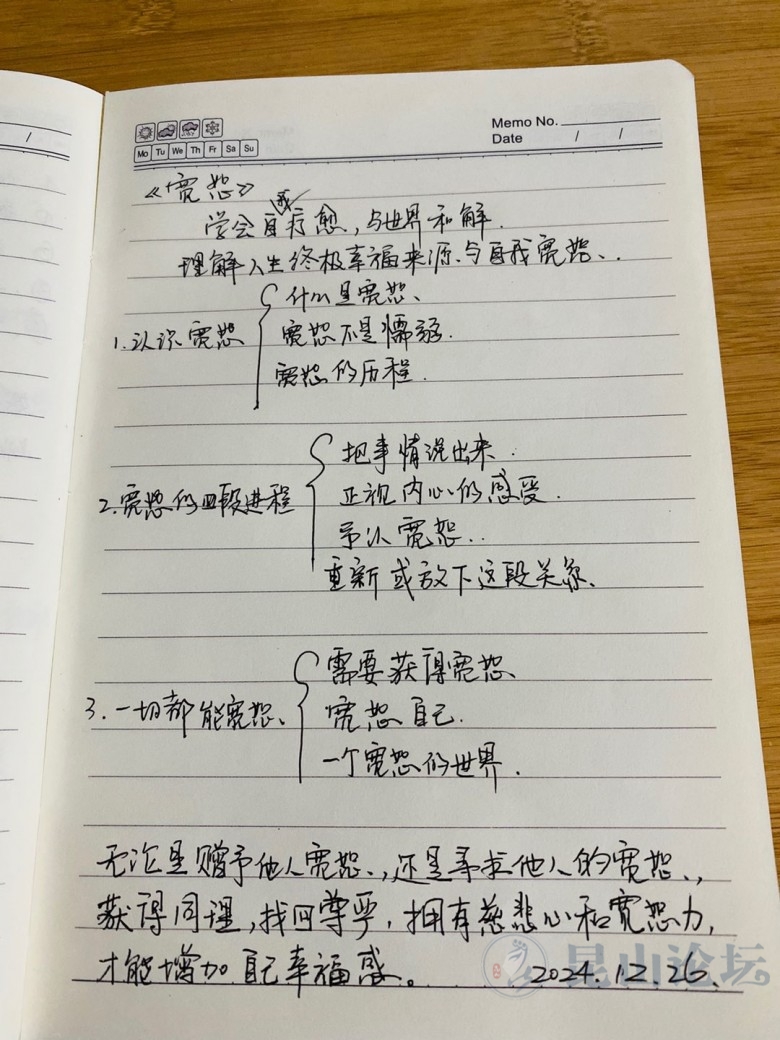 /
Memo No.
Date / /
Mo Tu We Th Fr Sa Su
《宽恕》
学会自我疗愈，与世界和解.
理解人生终极幸福来源、与自我宽恕、.
1.认识宽恕
什么是宽恕、
宽恕不是懦弱.
宽恕的历程.
2.宽恕的四段进程
把事情说出来.
正视内心的感受.
予以宽恕..
重新或放下这段关系、
3.一切都能宽恕、
需要获得宽恕、
宽恕自己.
一个宽恕的世界.
无论是赠予他人宽恕、,还是寻求他人的宽恕、,
获得同理,找回尊严,拥有慈悲心和宽恕力,
才能增加自己幸福感。 2024.12.26.
昆山论坛